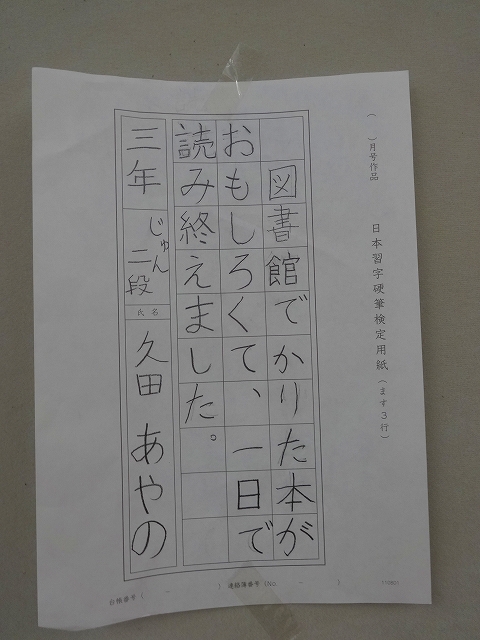 （　　）月号作品
日本習字硬筆検定用紙（ます3行）
図書館でかりた本が
おもしろくて、一日で
読み終えました。
三年
じゅん二段
氏名
久田 あやの
台帳番号（　　－　　）連絡簿番号（No.　　－　　）